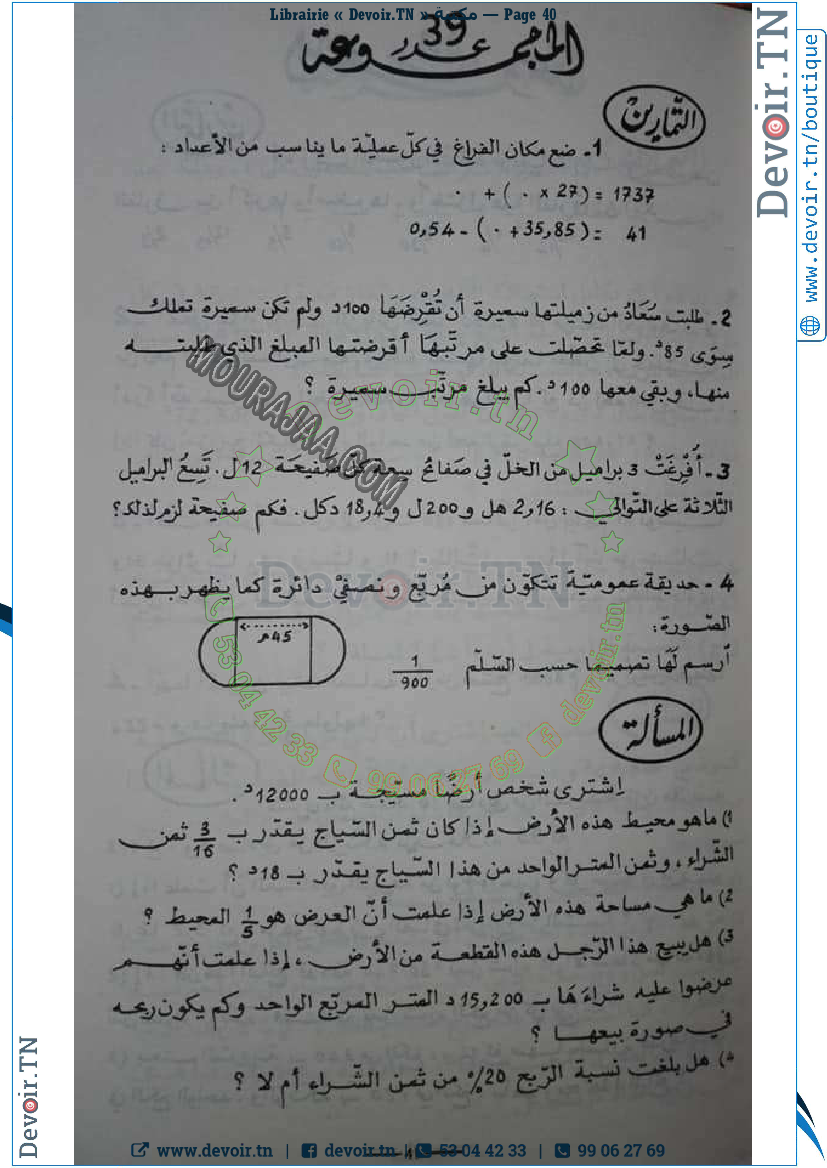 Librairie « Devoir.TN » مكتبة — Page 40
المجموعة عدد 39
التمارين
1- ضع مكان الفراغ في كلّ عمليّة ما يناسب من الأعداد :
· + ( · x 27) = 1737
0,54 - ( · + 35,85) = 41
2- طلبت سُعَادُ من زميلتها سميرة أن تُقْرِضَهَا 100د ولم تكن سميرة تملك
سِوَى 85د. ولمّا تحصّلت على مرتّبهَا أقرضتها المبلغ الذي طلبته
منها، وبقي معها 100د. كم يبلغ مرتّب سميرة ؟
3- أُفْرِغَتْ 3 براميل من الخلّ في صفائح سعة كلّ صفيحة 12ل. تَسِعُ البراميل
الثّلاثة على التّوالي : 2,16 هل و 200 ل و 18,4 دكل. فكم صفيحة لزم لذلك؟
4- حديقة عموميّة تتكوّن من مُربّع و نصفيْ دائرة كما يظهر بهذه
الصّورة:
45م
أرسم لَهَا تصميما حسب السّلّم 1/900
المسألة
اِشترى شخص أرضًا مسيّجة بـ 12000د.
1) ماهو محيط هذه الأرض إذا كان ثمن السّياج يقدّر بـ 3/16 ثمن
الشّراء، وثمن المتر الواحد من هذا السّياج يقدّر بـ 18د ؟
2) ما هي مساحة هذه الأرض إذا علمت أنّ العرض هو 1/5 المحيط ؟
3) هل يبيع هذا الرّجل هذه القطعة من الأرض، إذا علمت أنّهم
عرضوا عليه شراءَهَا بـ 15,200 د المتر المربّع الواحد وكم يكون ربحه
في صورة بيعها ؟
4) هل بلغت نسبة الرّبح 20% من ثمن الشّراء أم لا ؟
MOURAJAA.COM
devoir.tn
Devoir.TN
53 04 42 33
99 06 27 69
devoir.tn
Devoir.TN
www.devoir.tn/boutique
Devoir.TN
www.devoir.tn | devoir.tn | 53 04 42 33 | 99 06 27 69